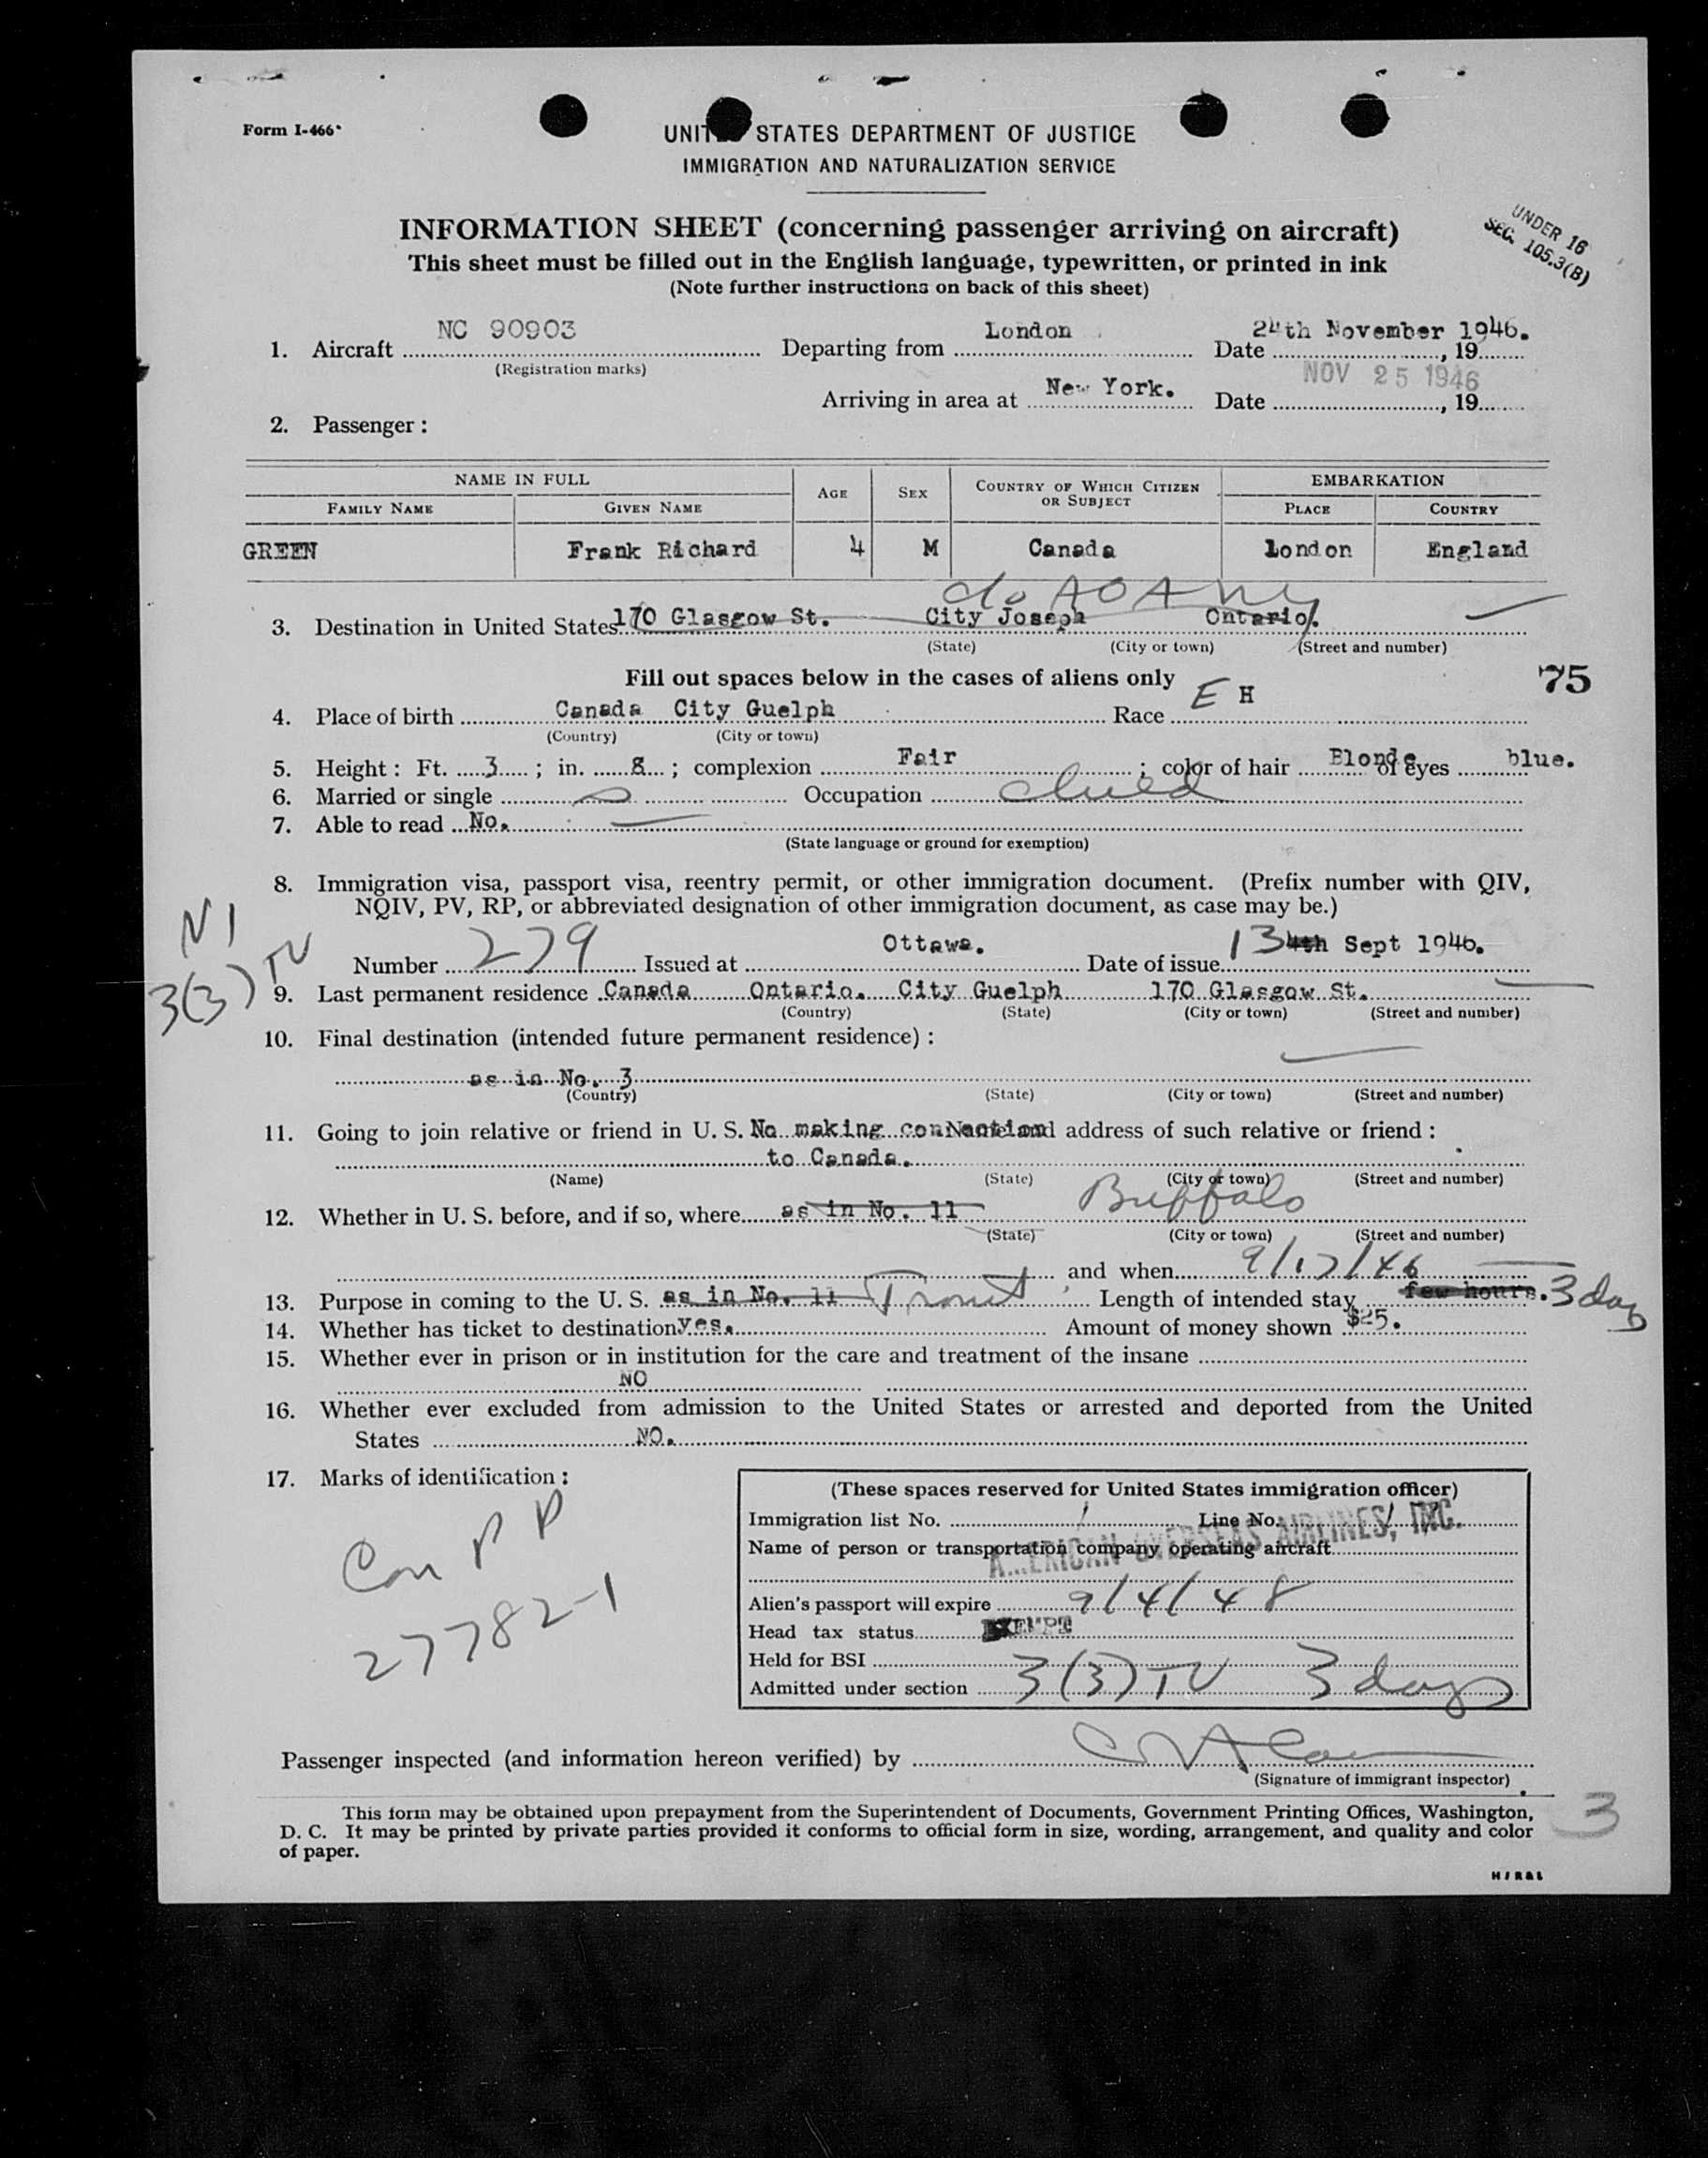 Form I-466
UNITED STATES DEPARTMENT OF JUSTICE
IMMIGRATION AND NATURALIZATION SERVICE
INFORMATION SHEET (concerning passenger arriving on aircraft)
This sheet must be filled out in the English language, typewritten, or printed in ink
(Note further instructions on back of this sheet)
UNDER 16
SEC. 105.3(B)
1. Aircraft NC 90903 Departing from London Date 24th November 1946. , 19
(Registration marks)
NOV 25 1946
Arriving in area at New York. Date , 19
2. Passenger :
NAME IN FULL AGE SEX COUNTRY OF WHICH CITIZEN OR SUBJECT EMBARKATION
FAMILY NAME GIVEN NAME PLACE COUNTRY
GREEN Frank Richard 4 M Canada London England
c/o AOA NY
3. Destination in United States 170 Glasgow St. City Joseph Ontario.
(State) (City or town) (Street and number)
Fill out spaces below in the cases of aliens only
75
4. Place of birth Canada City Guelph Race E H
(Country) (City or town)
5. Height : Ft. 3 ; in. 8 ; complexion Fair ; color of hair Blonde of eyes blue.
6. Married or single S Occupation Child
7. Able to read No.
(State language or ground for exemption)
8. Immigration visa, passport visa, reentry permit, or other immigration document. (Prefix number with QIV,
NQIV, PV, RP, or abbreviated designation of other immigration document, as case may be.)
NI
3(3) TV
Number 279 Issued at Ottawa. Date of issue 13 4th Sept 1946.
9. Last permanent residence Canada Ontario. City Guelph 170 Glasgow St.
(Country) (State) (City or town) (Street and number)
10. Final destination (intended future permanent residence) :
as in No. 3
(Country) (State) (City or town) (Street and number)
11. Going to join relative or friend in U. S. No making connection Name and address of such relative or friend :
to Canada.
(Name) (State) (City or town) (Street and number)
12. Whether in U. S. before, and if so, where as in No. 11 Buffalo
(State) (City or town) (Street and number)
and when 9/17/46
13. Purpose in coming to the U. S. as in No. 11 Transit Length of intended stay few hours. 3 days
14. Whether has ticket to destination yes. Amount of money shown $25.
15. Whether ever in prison or in institution for the care and treatment of the insane
NO
16. Whether ever excluded from admission to the United States or arrested and deported from the United
States NO.
17. Marks of identification :
Can PP
27782-1
(These spaces reserved for United States immigration officer)
Immigration list No. 1 Line No. 1
Name of person or transportation company operating aircraft
AMERICAN OVERSEAS AIRLINES, INC.
Alien's passport will expire 9/4/48
Head tax status EXEMPT
Held for BSI
Admitted under section 3(3) TV 3 days
Passenger inspected (and information hereon verified) by
(Signature of immigrant inspector)
This form may be obtained upon prepayment from the Superintendent of Documents, Government Printing Offices, Washington,
D. C. It may be printed by private parties provided it conforms to official form in size, wording, arrangement, and quality and color
of paper.
3